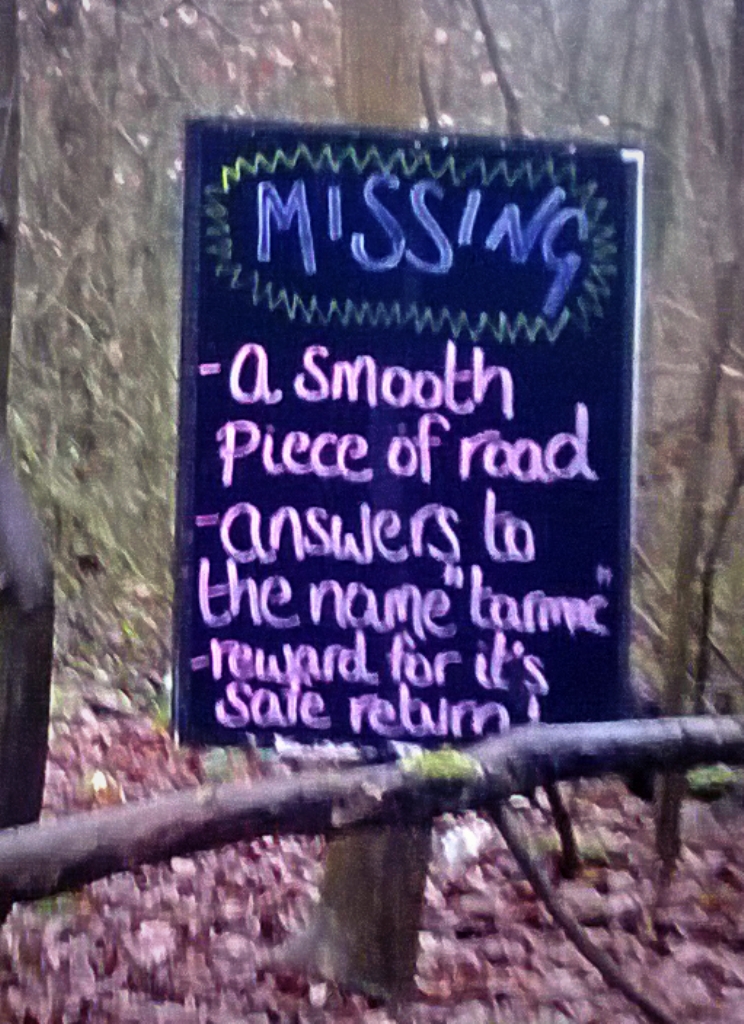 MISSING
- a smooth
piece of road
- answers to
the name "tarmac"
- reward for it's
safe return!